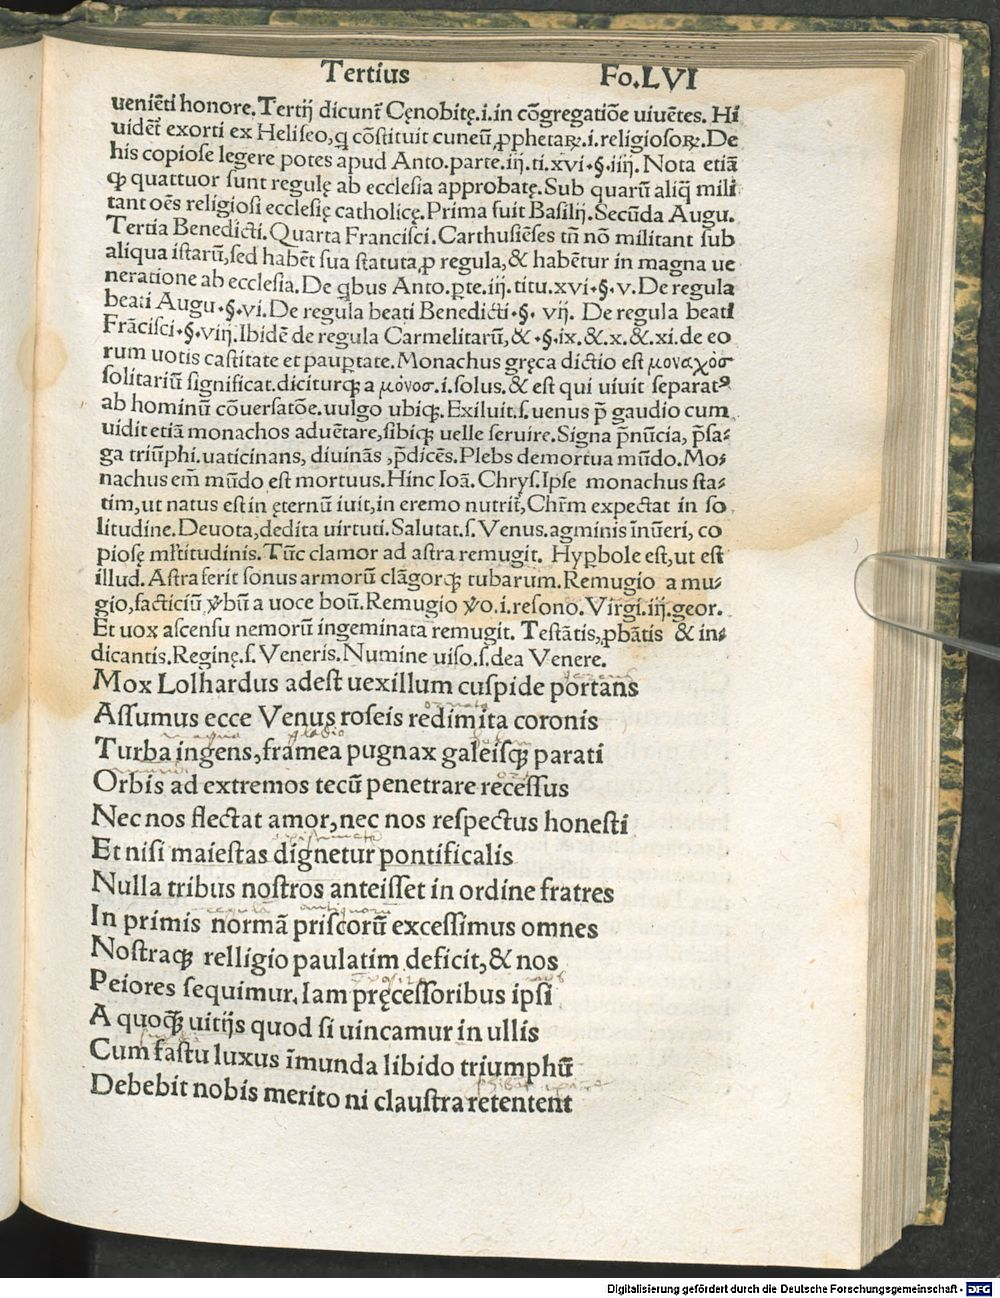 Tertius Fo.LVI
ueniẽti honore. Tertij dicunt᷑ Cęnobitę.i.in cõgregatiõe uiuẽtes. Hi
uidẽt᷑ exorti ex Heliseo,q̃ cõstituit cuneũ ꝓphetaꝝ.i.religiosoꝝ.De
his copiose legere potes apud Anto.parte.iij.ti.xvi.§.iiij. Nota etiã
ꝙ quattuor sunt regulę ab ecclesia approbatę.Sub quarũ aliq̃ mili
tant oẽs religiosi ecclesię catholicę.Prima fuit Basilij.Secũda Augu.
Tertia Benedicti.Quarta Francisci.Carthusiẽses tñ nõ militant sub
aliqua istarũ,sed habẽt sua statuta,ꝓ regula,& habẽtur in magna ue
neratione ab ecclesia.De q̃bus Anto.ꝑte.iij.titu.xvi.§.v.De regula
beati Augu.§.vi.De regula beati Benedicti.§. vij. De regula beati
Frãcisci.§.viij.Ibidẽ de regula Carmelitarũ,&.§.ix.&.x.&.xi.de eo
rum uotis castitate et pauꝑtate.Monachus gręca dictio est μοναχὸσ
solitariũ significat.diciturqꝫ a μόνοσ.i.solus.& est qui uiuit separatꝰ
ab hominũ cõuersatõe.uulgo ubiqꝫ.Exiluit.s.uenus p̃ gaudio cum
uidit etiã monachos aduẽtare,sibiqꝫ uelle seruire.Signa p̃nũcia, p̃sa-
ga triũphi.uaticinans, diuinãs ,p̃dicẽs.Plebs demortua mũdo.Mo-
nachus em̃ mũdo est mortuus.Hinc Ioã. Chrys.Ipse monachus sta-
tim,ut natus est in ęternũ iuit,in eremo nutrit᷑,Chr̃m expectat in so
litudine.Deuota,dedita uirtuti.Salutat.s.Venus.agminis ĩnũeri, co
piosę ml̃titudinis.Tũc clamor ad astra remugit. Hyꝑbole est,ut est
illud.Astra ferit sonus armorũ clãgorqꝫ tubarum.Remugio a mu-
gio,facticiũ ꝟbũ a uoce boũ.Remugio ꝟo.i.resono.Virgi.iij.geor.
Et uox ascensu nemorũ ingeminata remugit. Testãtis,ꝓbãtis & in-
dicantis.Reginę.s.Veneris.Numine uiso.s.dea Venere.
Mox Lolhardus adest uexillum cuspide portans
Assumus ecce Venus roseis redimita coronis
Turba ingens,framea pugnax galeisqꝫ parati
Orbis ad extremos tecũ penetrare recessus
Nec nos flectat amor,nec nos respectus honesti
Et nisi maiestas dignetur pontificalis
Nulla tribus nostros anteisset in ordine fratres
In primis normã priscorũ excessimus omnes
Nostraqꝫ relligio paulatim deficit,& nos
Peiores sequimur.Iam pręcessoribus ipsi
A quoqꝫ̃ uitijs quod si uincamur in ullis
Cum fastu luxus ĩmunda libido triumphũ
Debebit nobis merito ni claustra retentent
Digitalisierung gefördert durch die Deutsche Forschungsgemeinschaft - DFG